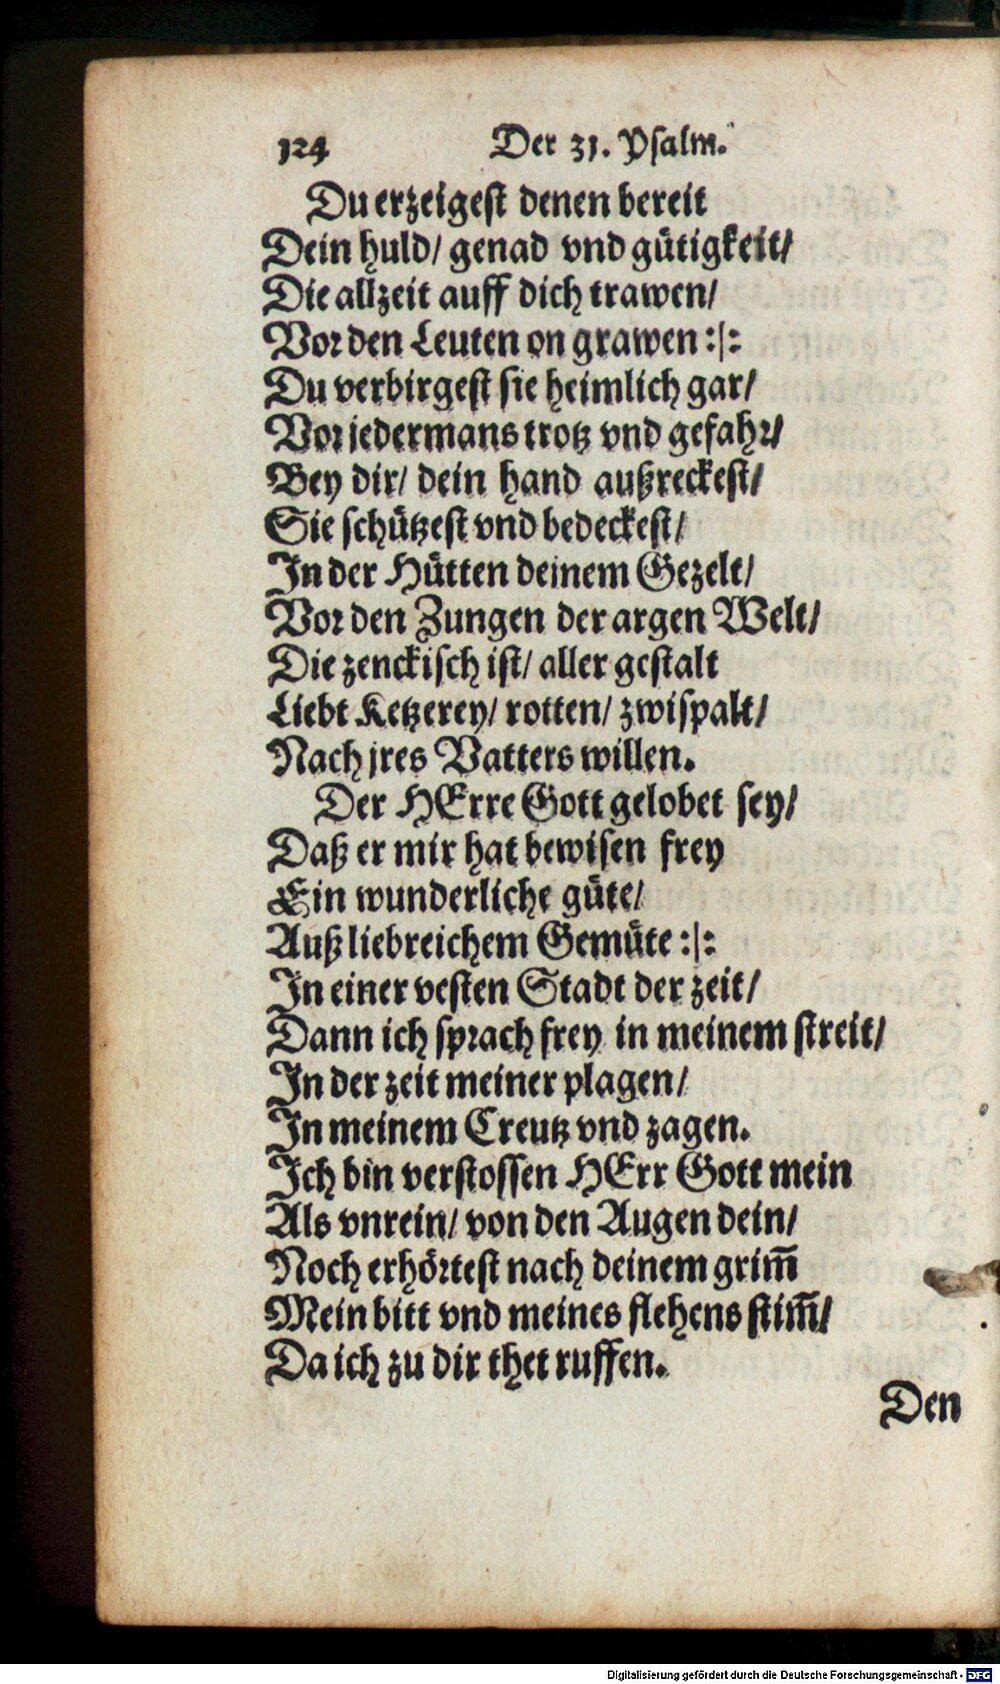 124 Der 31. Psalm.
Du erzeigest denen bereit
Dein huld/ genad vnd gütigkeit/
Die allzeit auff dich trawen/
Vor den Leuten on grawen :|:
Du verbirgest sie heimlich gar/
Vor jedermans trotz vnd gefahr/
Bey dir/ dein hand außreckest/
Sie schützest vnd bedeckest/
In der Hütten deinem Gezelt/
Vor den Zungen der argen Welt/
Die zenckisch ist/ aller gestalt
Liebt Ketzerey/ rotten/ zwispalt/
Nach jres Vatters willen.
Der HErre Gott gelobet sey/
Daß er mir hat bewisen frey
Ein wunderliche güte/
Auß liebreichem Gemüte :|:
In einer vesten Stadt der zeit/
Dann ich sprach frey in meinem streit/
In der zeit meiner plagen/
In meinem Creutz vnd zagen.
Ich bin verstossen HErr Gott mein
Als vnrein/ von den Augen dein/
Noch erhörtest nach deinem grim̅
Mein bitt vnd meines flehens stim̅/
Da ich zu dir thet ruffen.
Den
Digitalisierung gefördert durch die Deutsche Forschungsgemeinschaft - DFG